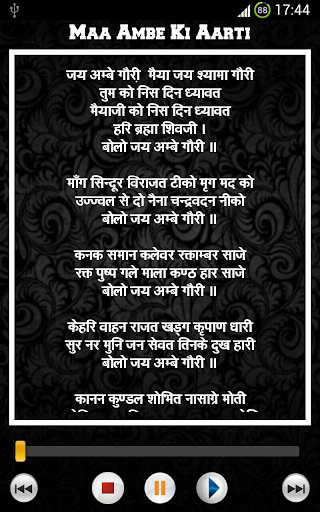 88 17:44
Maa Ambe Ki Aarti
जय अम्बे गौरी़ मैया जय श्यामा गौरी
तुम को निस दिन ध्यावत
मैयाजी को निस दिन ध्यावत
हरि ब्रह्मा शिवजी ।
बोलो जय अम्बे गौरी ॥
माँग सिन्दूर विराजत टीको मृग मद को
उज्ज्वल से दो नैना चन्द्रवदन नीको
बोलो जय अम्बे गौरी ॥
कनक समान कलेवर रक्ताम्बर साजे
रक्त पुष्प गले माला कण्ठ हार साजे
बोलो जय अम्बे गौरी ॥
केहरि वाहन राजत खड्ग कृपाण धारी
सुर नर मुनि जन सेवत तिनके दुख हारी
बोलो जय अम्बे गौरी ॥
कानन कुण्डल शोभित नासाग्रे मोती